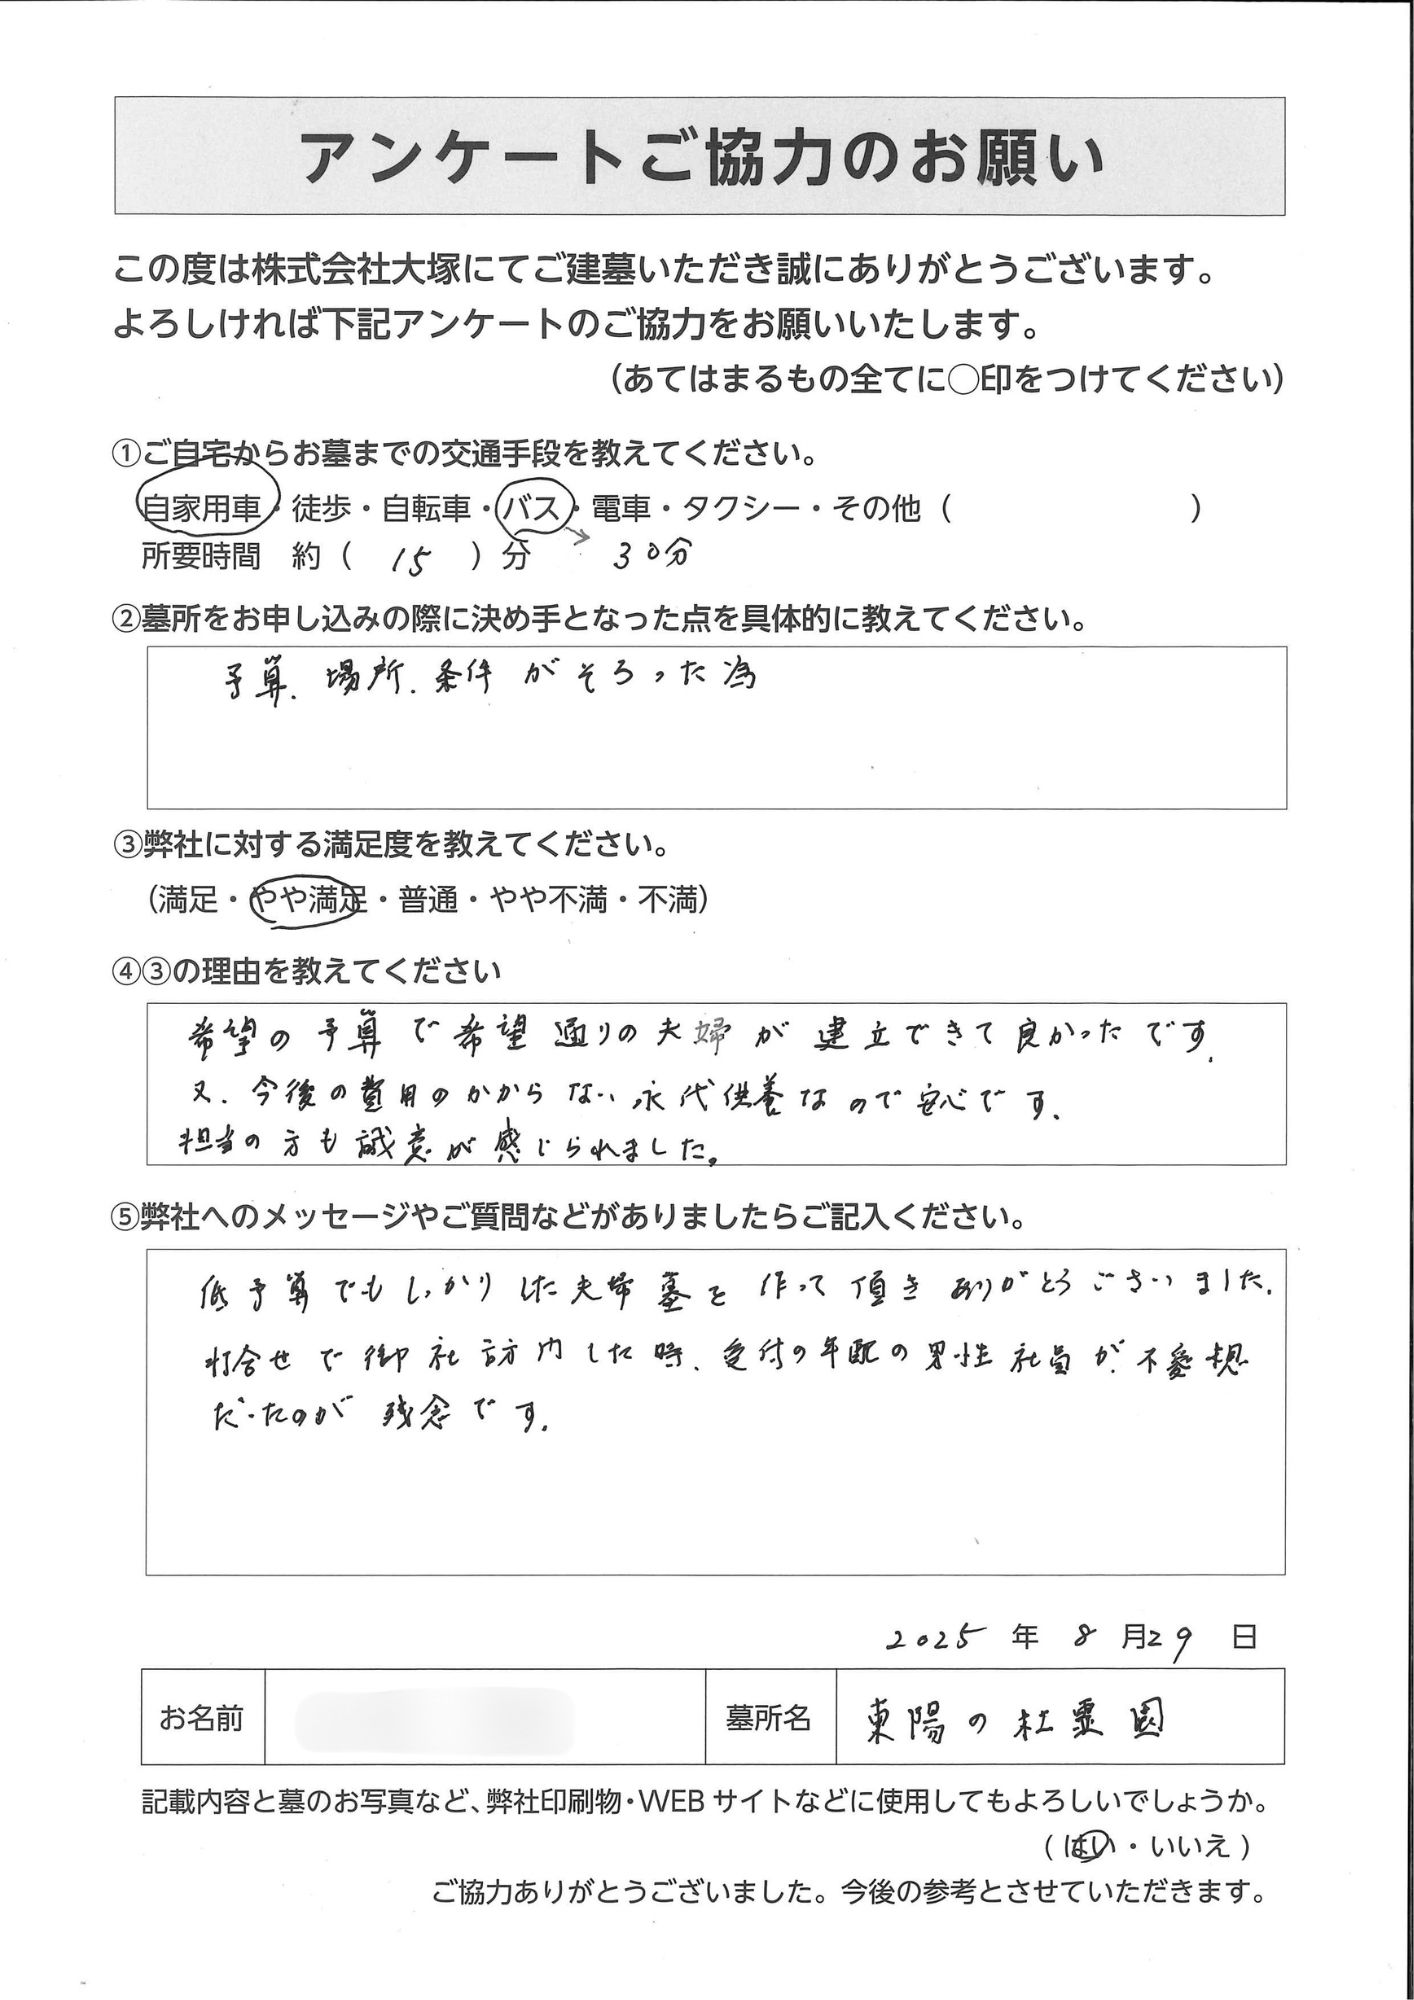 アンケートご協力のお願い
この度は株式会社大塚にてご建墓いただき誠にありがとうございます。
よろしければ下記アンケートのご協力をお願いいたします。
（あてはまるもの全てに〇印をつけてください）
①ご自宅からお墓までの交通手段を教えてください。
自家用車・徒歩・自転車・バス・電車・タクシー・その他（　　　　）
所要時間　約（　15　）分　30分
②墓所をお申し込みの際に決め手となった点を具体的に教えてください。
予算、場所、条件がそろった為
③弊社に対する満足度を教えてください。
（満足・やや満足・普通・やや不満・不満）
④③の理由を教えてください
希望の予算で希望通りの夫婦が建立できて良かったです。
又、今後の費用のかからない永代供養なので安心です。
担当の方も誠意が感じられました。
⑤弊社へのメッセージやご質問などがありましたらご記入ください。
低予算でもしっかりした夫婦墓を作って頂きありがとうございました。
打合せで御社訪問した時、受付の年配の男性社員が不愛想
だったのが残念です。
2025 年 8 月 29 日
お名前　墓所名　東陽の杜霊園
記載内容と墓のお写真など、弊社印刷物・WEBサイトなどに使用してもよろしいでしょうか。
（はい・いいえ）
ご協力ありがとうございました。今後の参考とさせていただきます。